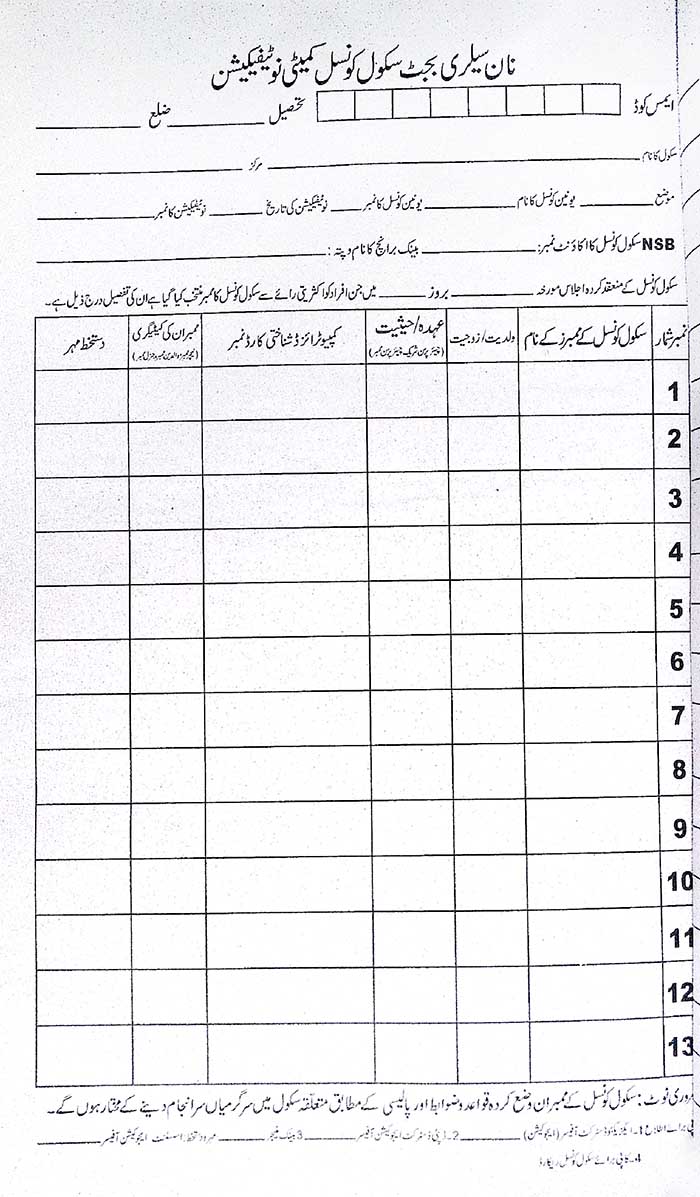 نان سیلری بجٹ سکول کونسل کمیٹی نوٹیفیکیشن
ایمس کوڈ تحصیل ________ ضلع ________
سکول کا نام ________ مرکز ________
موضع ________ یونین کونسل کا نام ________ یونین کونسل کا نمبر ________ نوٹیفیکیشن کی تاریخ ________ نوٹیفیکیشن کا نمبر ________
NSB سکول کونسل کا اکاؤنٹ نمبر: ________ بینک برانچ کا نام و پتہ: ________
سکول کونسل کے منعقد کردہ اجلاس مورخہ ________ بروز ________ میں جن افراد کو اکثریتی رائے سے سکول کونسل کا ممبر منتخب کیا گیا ہے ان کی تفصیل درج ذیل ہے۔
نمبر شمار سکول کونسل کے ممبرز کے نام ولدیت/زوجیت عہدہ/حیثیت کمپیوٹرائزڈ شناختی کارڈ نمبر ممبران کی کیٹیگری دستخط مہر
1
2
3
4
5
6
7
8
9
10
11
12
13
ضروری نوٹ: سکول کونسل کے ممبران وضع کردہ قواعد و ضوابط اور پالیسی کے مطابق متعلقہ سکول میں سرگرمیاں سرانجام دینے کے مختار ہوں گے۔
کاپی برائے اطلاع 1۔ ایگزیکٹو ڈسٹرکٹ آفیسر (ایجوکیشن) ________ 2۔ ڈپٹی ڈسٹرکٹ ایجوکیشن آفیسر ________ 3 بینک منیجر ________ مہر و دستخط: اسسٹنٹ ایجوکیشن آفیسر ________
4۔ کاپی برائے سکول کونسل ریکارڈ